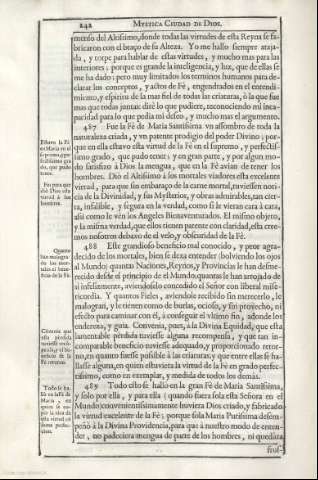 242 MYSTICA CIUDAD DE DIOS.
menso del Altissimo, donde todas las virtudes de esta Reyna se fa-
bricaron con el braço de su Alteza. Yo me hallo siempre ataja-
da, y torpe para hablar de estas virtudes, y mucho mas para las
interiores; porque es grande la inteligencia, y luz, que de ellas se
me ha dado; pero muy limitados los terminos humanos para de-
clarar los conceptos, y actos de Fé, engendrados en el entendi-
miento, y espiritu de la mas fiel de todas las criaturas, ò la que fue
mas que todas juntas: diré lo que pudiere, reconociendo mi inca-
pacidad para lo que pedia mi deseo, y mucho mas el argumento.
487 Fue la Fé de Maria Santissima vn assombro de toda la
naturaleza criada, y vn patente prodigio del poder Divino; por-
que en ella estuvo esta virtud de la Fé en el supremo, y perfectis-
simo grado, que pudo tener; y en gran parte, y por algun mo-
do satisfizo à Dios la mengua, que en la Fé avian de tener los
hombres. Diò el Altissimo à los mortales viadores esta excelente
virtud, para que sin embarazo de la carne mortal, tuviessen noti-
cia de la Divinidad, y sus Mysterios, y obras admirables, tan cier-
ta, infalible, y segura en la verdad, como si le vieran cara à cara,
assi como le vèn los Angeles Bienaventurados. El mismo objeto,
y la misma verdad, que ellos tienen patente con claridad, essa cree-
mos nosotros debaxo de el velo, y obscuridad de la Fé.
488 Este grandioso beneficio mal conocido, y peor agra-
decido de los mortales, bien se dexa entender (bolviendo los ojos
al Mundo) quantas Naciones, Reynos, y Provincias le han desme-
recido desde el principio de el Mundo, quantas le han arrojado de
si infelizmente, aviendoselo concedido el Señor con liberal mise-
ricordia. Y quantos Fieles, aviendole recibido sin merecerlo, le
malogran, y le tienen como de burlas, ocioso, y sin provecho, ni
efecto para caminar con él, à conseguir el vltimo fin, adonde los
endereza, y guia. Convenia, pues, à la Divina Equidad, que esta
lamentable pérdida tuviesse alguna recompensa, y que tan in-
comparable beneficio tuviesse adequado, y proporcionado retor-
no, en quanto fuesse possible à las criaturas; y que entre ellas se ha-
llasse alguna, en quien estuviesse la virtud de la Fé en grado perfec-
tissimo, como en exemplar, y medida de todos los demás.
489 Todo esto se hallò en la gran Fé de Maria Santissima,
y solo por ella, y para ella (quando fuera sola esta Señora en el
Mundo) convenientissimamente huviera Dios criado, y fabricado
la virtud excelente de la Fé; porque sola Maria Purissima desem-
peñò à la Divina Providencia, para que à nuestro modo de enten-
der, no padeciera mengua de parte de los hombres, ni quedàra
frus-
Estuvo la Fé
en Maria en el
supremo, y per-
fectissimo gra-
do, que pudo
tener.
Fin para que
diò Dios esta
virtud à los
hombres.
Quanto
han malogra-
do los mor-
tales el bene-
ficio de la Fé.
Convenia que
esta pérdida
tuviesse recom-
pensa, y el be-
neficio de la
Fé retorno.
Todo se ha-
llò en la Fé de
Maria, y